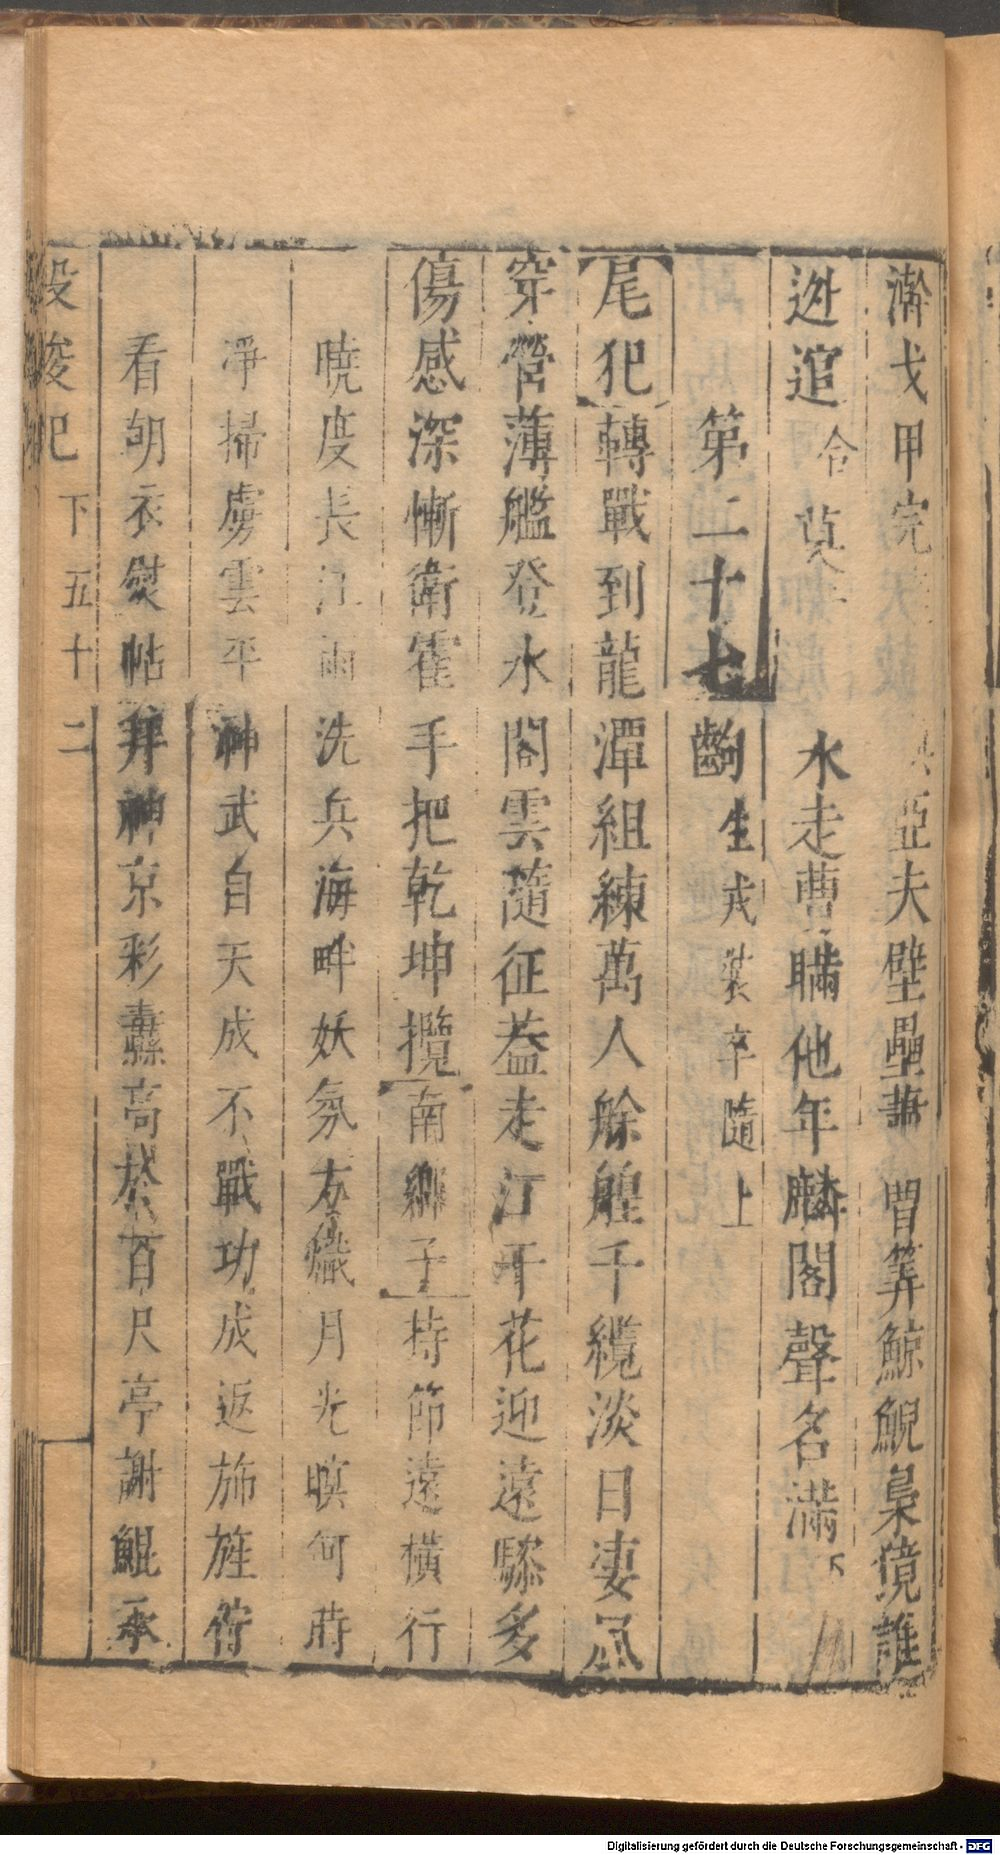 澣戈甲完亞夫壁壘誰曽筭鯨鯢梟獍誰
迯逭合莫水走曹瞞他年麟閣聲名滿下
第二十七齣生戎裝卒隨上
尾犯轉戰到龍潭組練萬人艅艎千纜淡日凄風
穿營薄艦登水閣雲隨征葢走江干花迎遠驂多
傷感深慚衛霍手把乾坤攬南鄉子持節遠橫行
曉度長江雨洗兵海畔妖氛方熾月光暝何蒔
淨掃虜雲平神武自天成不戰功成返斾旌佇
看朝衣熨帖拜神京彩纛高於百尺亭謝鯤承
投梭記
下五十二
Digitalisierung gefördert durch die Deutsche Forschungsgemeinschaft - DFG